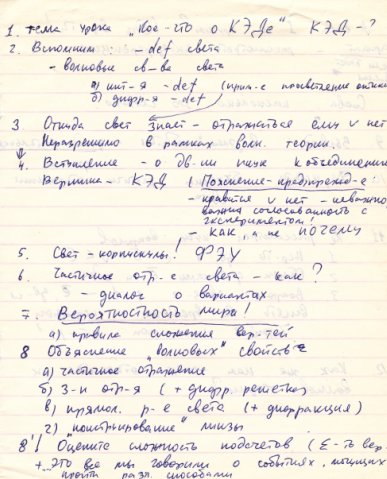 1. тема урока „Кое-что о КЭДе" КЭД - ?
2. Вспомнили: - def света
- волновые св-ва света
а) инт-я - def (прим-е просветление оптики
б) дифр-я - def
3. Откуда свет знает - отражаться ему v нет
Неразрешимо в рамках волн. теории.
4. Вступление - о дв-ии наук к объединению
Вершина - КЭД
! Пояснение-предупрежд-е:
- нравится v нет - неважно
важна согласованность с
экспериментом!
- как а не почему
5. Свет - корпускулы! ФЭУ
6. Частичное отр-е света - как?
- диалог о вариантах
7. Вероятностность мира!
а) правила сложения вер-тей
8 Объяснение „волновых" свойств
а) частичное отражение
б) З-н отр-я (+ дифр. решетка)
в) прямол. р-е света (+ дифракция)
г) „конструирование" линзы
8'! Оцените сложность подсчетов (Σ-ть вер.
+ Это все мы говорили о событиях, могущих
пройти разл. способами